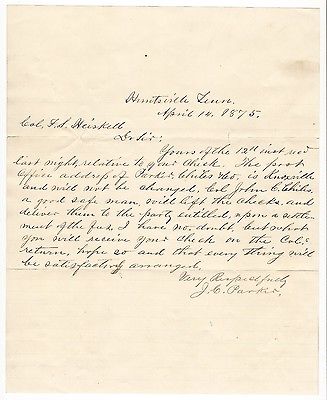 Huntsville Tenn.
April 14, 1875.
Col. F. S. Heiskell
Dr Sir;
Yours of the 12th inst rcd
last night, relative to your check. The post
Office address of Parker Chiles &co, is Knoxville
and will not be changed, Col. John C. Chiles,
a good safe man, will left the checks, and
deliver them to the party entitled, upon a
ment of the fax, I have no, doubt, but what
you will receive your check on the Col.
return, hope so and that every thing will
be satisfactory arranged,
Very Respectfuly
J. C. Parker.